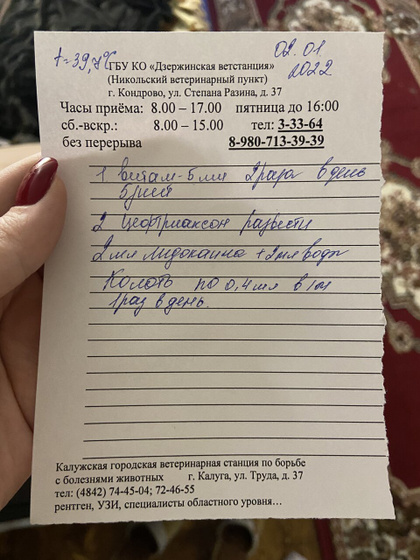 t-39,7°C
02.01
2022
ГБУ КО «Дзержинская ветстанция»
(Никольский ветеринарный пункт)
г. Кондрово, ул. Степана Разина, д. 37
Часы приёма: 8.00 – 17.00 пятница до 16:00
сб.-вскр.: 8.00 – 15.00 тел: 3-33-64
без перерыва 8-980-713-39-39
1 витам-5 мл 2 раза в день
5 дней
2 Цефтриаксон развести
2 мл лидокаина + 2 мл воды
Колоть по 0,4 мл в/м
1 раз в день.
Калужская городская ветеринарная станция по борьбе
с болезнями животных г. Калуга, ул. Труда, д. 37
тел: (4842) 74-45-04; 72-46-55
рентген, УЗИ, специалисты областного уровня…